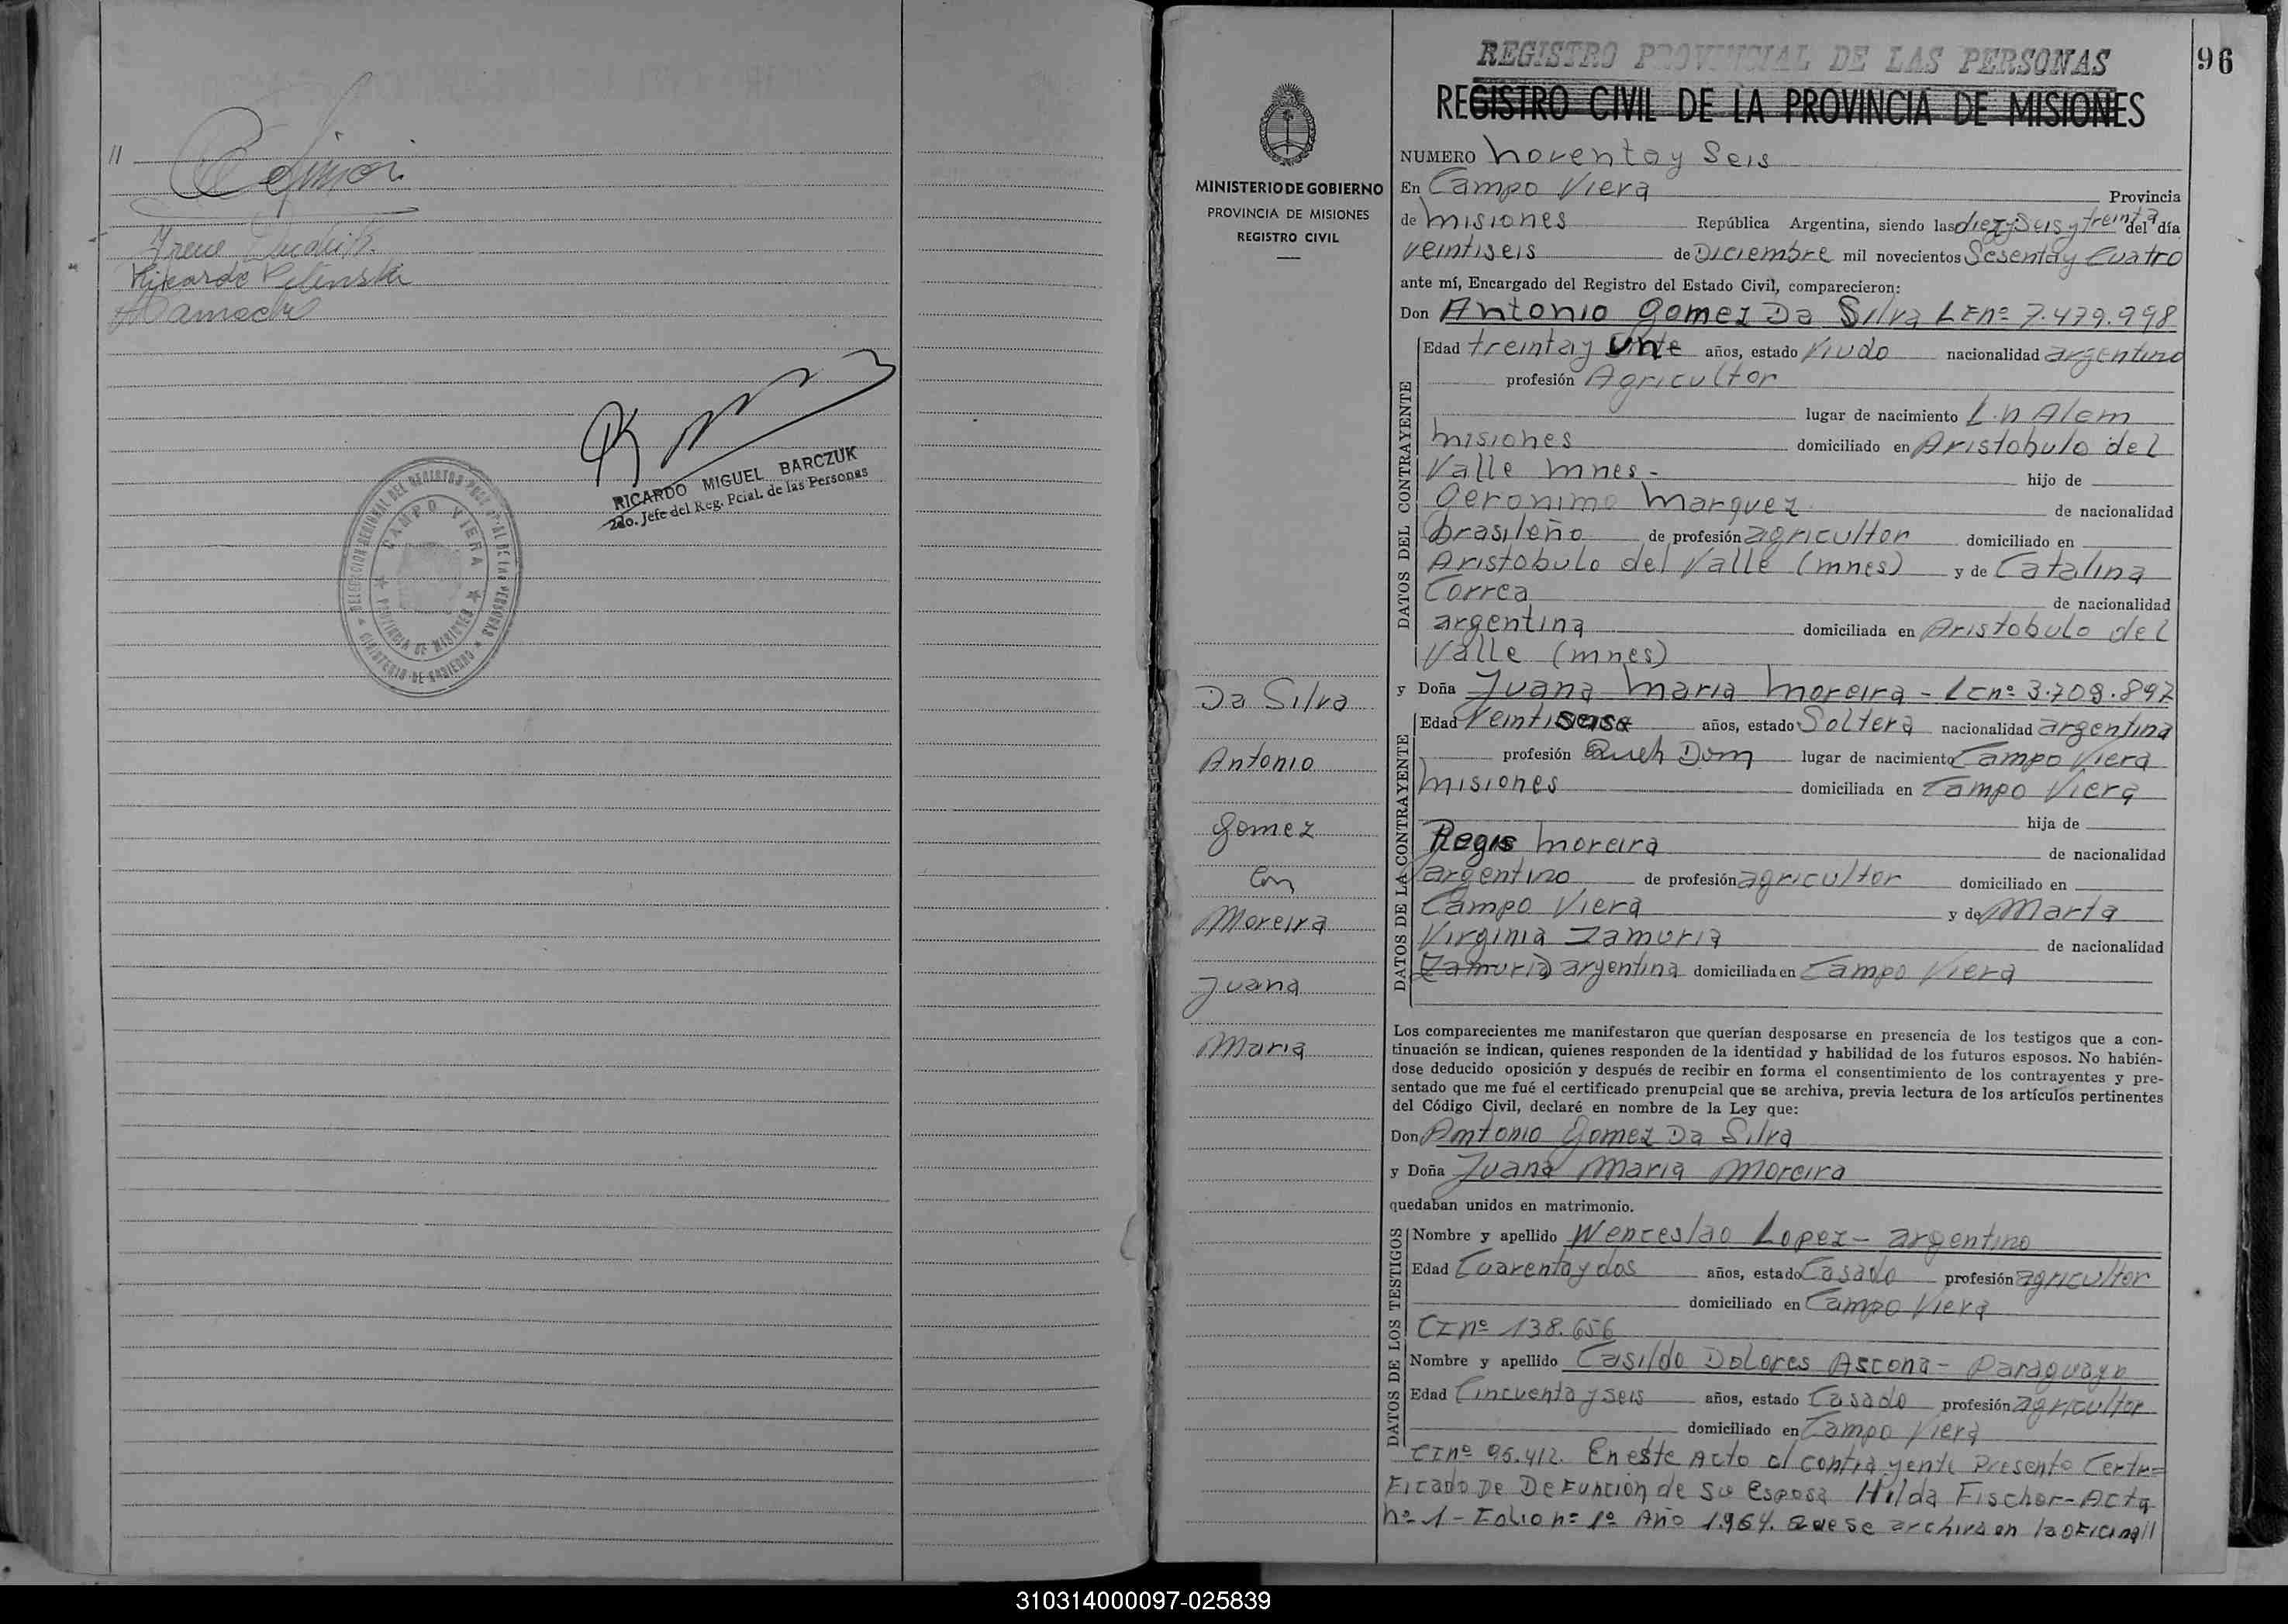 //
Irene Dudik
Ricardo Zelinski
RICARDO MIGUEL BARCZUK
2do. Jefe del Reg. Pcial. de las Personas
DELEGACION REGIONAL DEL REGISTRO PCIAL DE LAS PERSONAS
CAMPO VIERA
PROVINCIA DE MISIONES
MINISTERIO DE GOBIERNO
REGISTRO PROVINCIAL DE LAS PERSONAS
96
REGISTRO CIVIL DE LA PROVINCIA DE MISIONES
MINISTERIO DE GOBIERNO
PROVINCIA DE MISIONES
REGISTRO CIVIL
Da Silva
Antonio
Gomez
Con
Moreira
Juana
Maria
NUMERO Noventa y Seis
En Campo Viera Provincia
de Misiones República Argentina, siendo las diez y seis y treinta del día
veintiseis de Diciembre mil novecientos Sesenta y Cuatro
ante mí, Encargado del Registro del Estado Civil, comparecieron:
Don Antonio Gomez Da Silva LE nº 7.479.998
DATOS DEL CONTRAYENTE
Edad treinta y años, estado Viudo nacionalidad argentino
profesión Agricultor
lugar de nacimiento L.N Alem
Misiones domiciliado en Aristobulo del
Valle Mnes- hijo de
Geronimo Marquez de nacionalidad
brasileño de profesión agricultor domiciliado en
Aristobulo del Valle (Mnes) y de Catalina
Correa de nacionalidad
argentina domiciliada en Aristobulo del
Valle (mnes)
y Doña Juana Maria Moreira - LC nº 3.709.897
DATOS DE LA CONTRAYENTE
Edad Veinti años, estado Soltera nacionalidad argentina
profesión Queh Dom lugar de nacimiento Campo Viera
Misiones domiciliada en Campo Viera
hija de
Regis Moreira de nacionalidad
argentino de profesión agricultor domiciliado en
Campo Viera y de Marta
Virginia Zamuria de nacionalidad
Zamuria argentina domiciliada en Campo Viera
Los comparecientes me manifestaron que querían desposarse en presencia de los testigos que a con-
tinuación se indican, quienes responden de la identidad y habilidad de los futuros esposos. No habién-
dose deducido oposición y después de recibir en forma el consentimiento de los contrayentes y pre-
sentado que me fué el certificado prenupcial que se archiva, previa lectura de los artículos pertinentes
del Código Civil, declaré en nombre de la Ley que:
Don Antonio Gomez Da Silva
y Doña Juana Maria Moreira
quedaban unidos en matrimonio.
DATOS DE LOS TESTIGOS
Nombre y apellido Wenceslao Lopez - argentino
Edad Cuarenta y dos años, estado Casado profesión agricultor
domiciliado en Campo Viera
CI nº 138.656
Nombre y apellido Casildo Dolores Ascona - Paraguayo
Edad Cincuenta y seis años, estado Casado profesión agricultor
domiciliado en Campo Viera
CI nº 95.412. En este Acto el contrayente Presento Certi=
Ficado De DeFuncion de su Esposa Hilda Fischer - Acta
nº 1 - Folio nº 1º Año 1.964. que se archiva en la oficina//
310314000097-025839